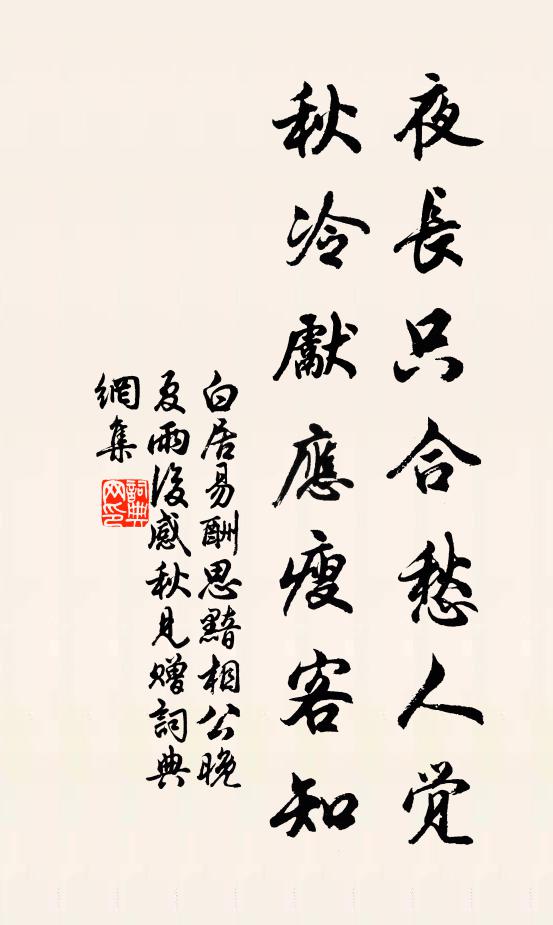 夜長只合愁人觉
秋冷獻應瘦客知
白居易酬思黯相公晚
夏雨後感秋見贈詞典
網集
詞典
网印